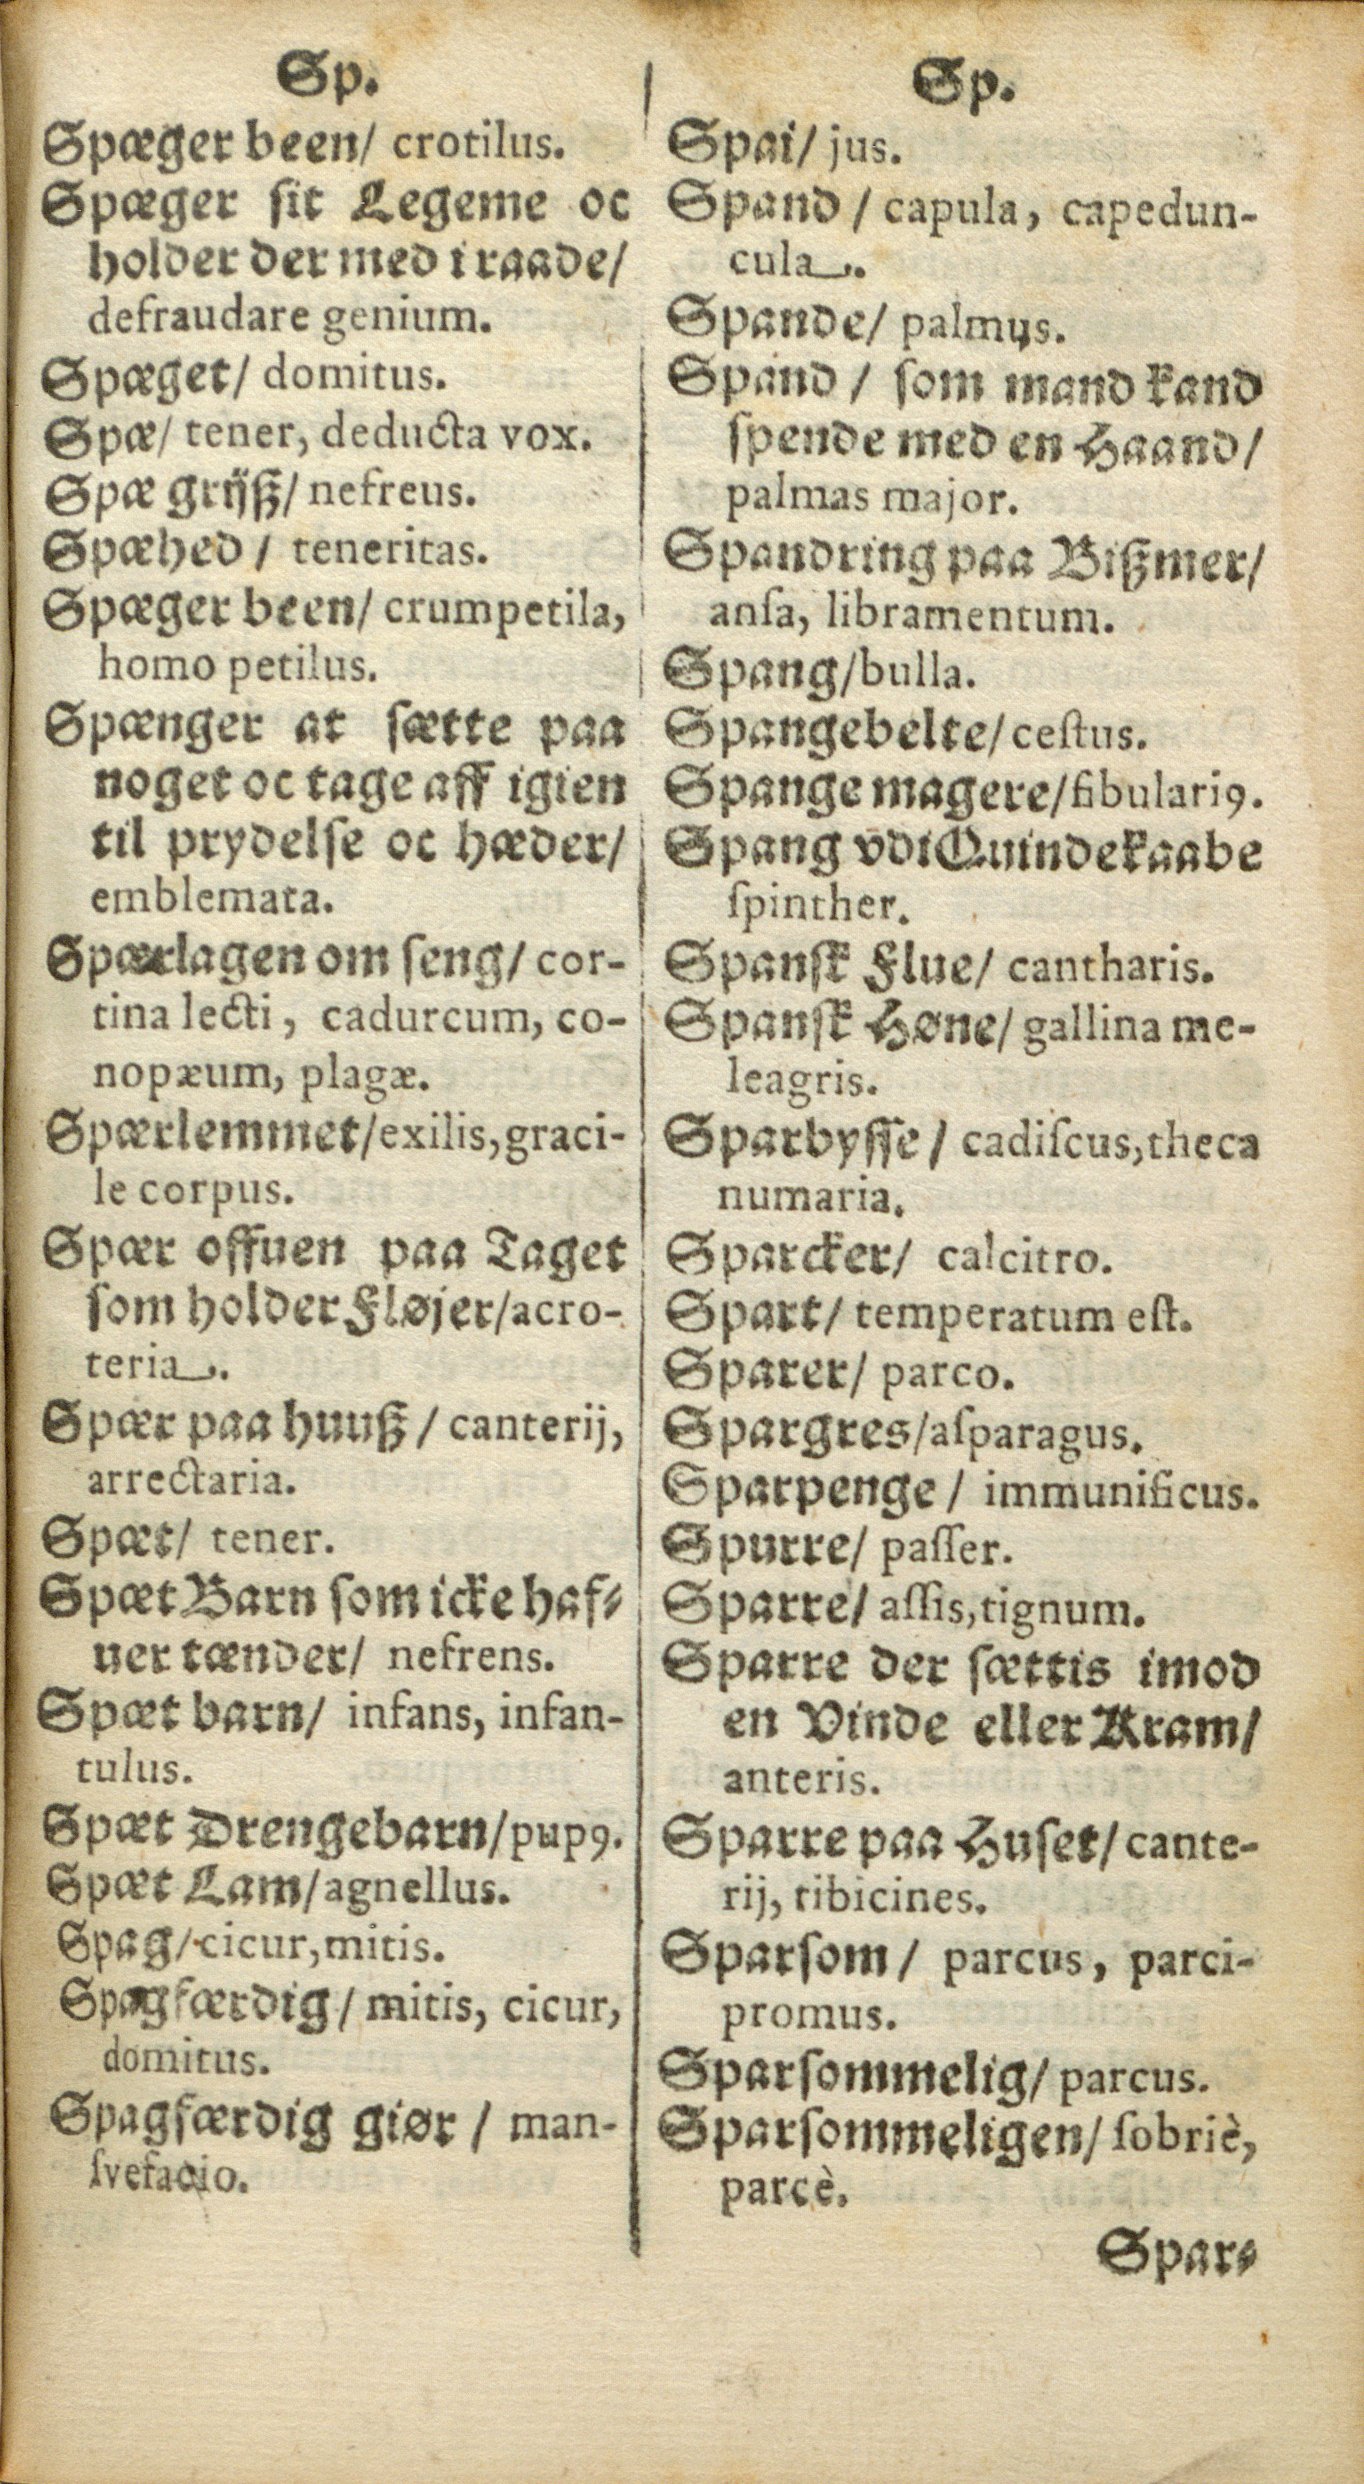 Sp.
Spæger been/ crotilus.
Spæger sit Legeme oc
holder der med i raade/
defraudare genium.
Spæget/ domitus.
Spæ/ tener, deducta vox.
Spæ grijß/ nefreus.
Spæhed/ teneritas.
Spæger been/ crumpetila,
homo petilus.
Spænger at sætte paa
noget oc tage aff igien
til prydelse oc hæder/
emblemata.
Spærlagen om seng/ cor-
tina lecti, cadurcum, co-
nopæum, plagæ.
Spærlemmet/exilis, graci-
le corpus.
Spær offuen paa Taget
som holder Fløjer/acro-
teria.
Spær paa huuß/ canterij,
arrectaria.
Spæt/ tener.
Spæt Barn som icke haf-
uer tænder/ nefrens.
Spæt barn/ infans, infan-
tulus.
Spæt Drengebarn/pupꝰ.
Spæt Lam/agnellus.
Spag/ cicur, mitis.
Spagfærdig/ mitis, cicur,
domitus.
Spagfærdig giør/ man-
ſvefacio.
Sp.
Spai/ jus.
Spand/ capula, capedun-
cula.
Spande/ palmus.
Spand/ som mand kand
spende med en Haand/
palmas major.
Spandring paa Bißmer/
anſa, libramentum.
Spang/bulla.
Spangebelte/ ceſtus.
Spange magere/fibulariꝰ.
Spang vdi Quindekaabe
ſpinther.
Spansk Flue/ cantharis.
Spansk Høne/ gallina me-
leagris.
Sparbysse/ cadiſcus, theca
numaria.
Sparcker/ calcitro.
Spart/ temperatum eſt.
Sparer/ parco.
Spargres/aſparagus.
Sparpenge/ immunificus.
Spurre/ paſſer.
Sparre/ aſſis, tignum.
Sparre der sættis imod
en Vinde eller Kram/
anteris.
Sparre paa Huset/ cante-
rij, tibicines.
Sparsom/ parcus, parci-
promus.
Sparsommelig/ parcus.
Sparsommeligen/ ſobriè,
parcè.
Spar-